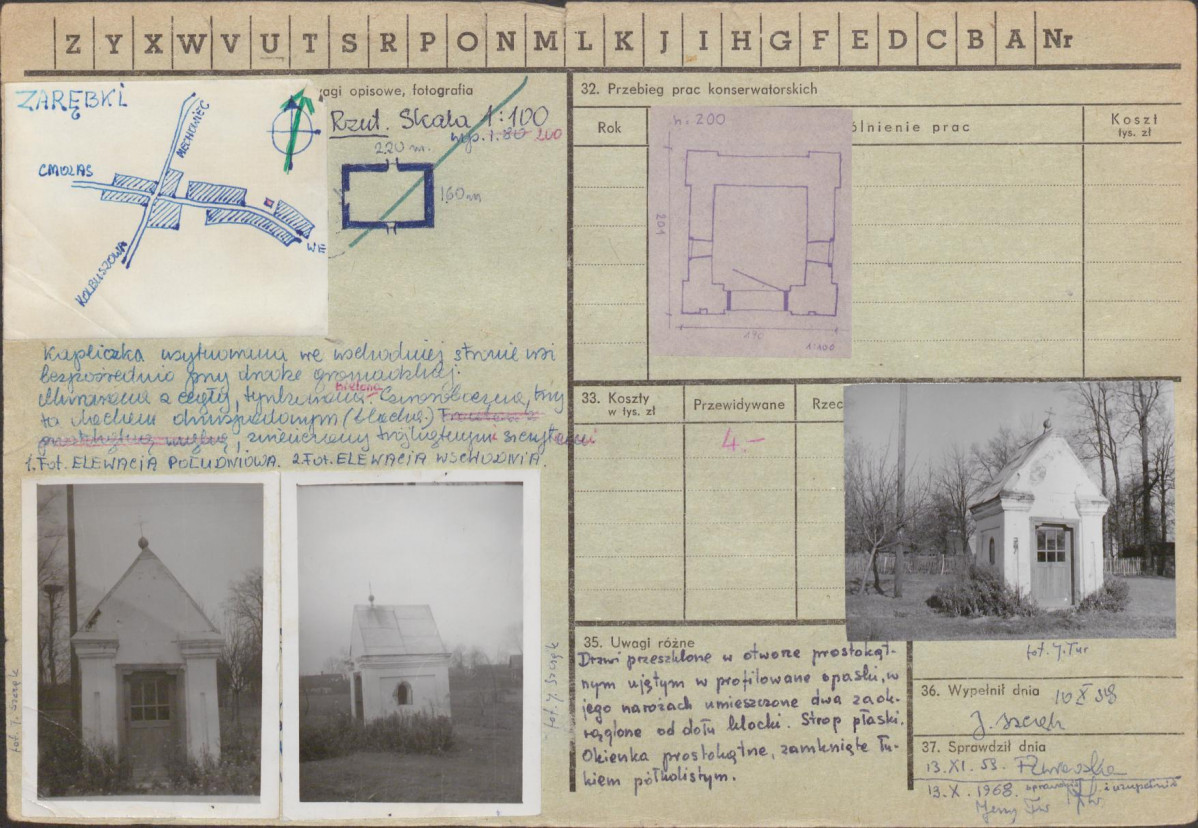 Z Y X W V U T S R P O N M L K J I H G F E D C B A Nr
ZARĘBKI
MECHOWIEC
CMOLAS
KOLBUSZOWA
WE
agi opisowe, fotografia
Rzut. Skala 1:100
220 m.
160 m
32. Przebieg prac konserwatorskich
Rok
ólnienie prac
Koszt
tys. zł
h: 200
201
1:100
Kapliczka usytuowana we wschodniej stronie wsi
bezpośrednio przy drodze gromadzkiej.
Murowana z cegły, tynkowana bielona Czworoboczna, kry
ta dachem dwuspadowym (blacha.)
zwieńczony trójkątnymi szczytami
1. Fot. ELEWACJA POŁUDNIOWA. 2. Fot. ELEWACJA WSCHODNIA.
fot. J. Szczęk
fot. J. Szczęk
33. Koszty
w tys. zł
Przewidywane
Rzec
4.-
fot. J. Tur
35. Uwagi różne
Drzwi przeszklone w otworze prostokąt-
nym ujętym w profilowane opaski, w
jego narożach umieszczone dwa zaok-
rąglone od dołu klocki. Strop płaski.
Okienka prostokątne, zamknięte łu-
kiem półkolistym.
36. Wypełnił dnia 10 X 59
J. Szczęk
37. Sprawdził dnia
13. XI. 59.
19. X. 1968. i uzupełnił
Jerzy Tur